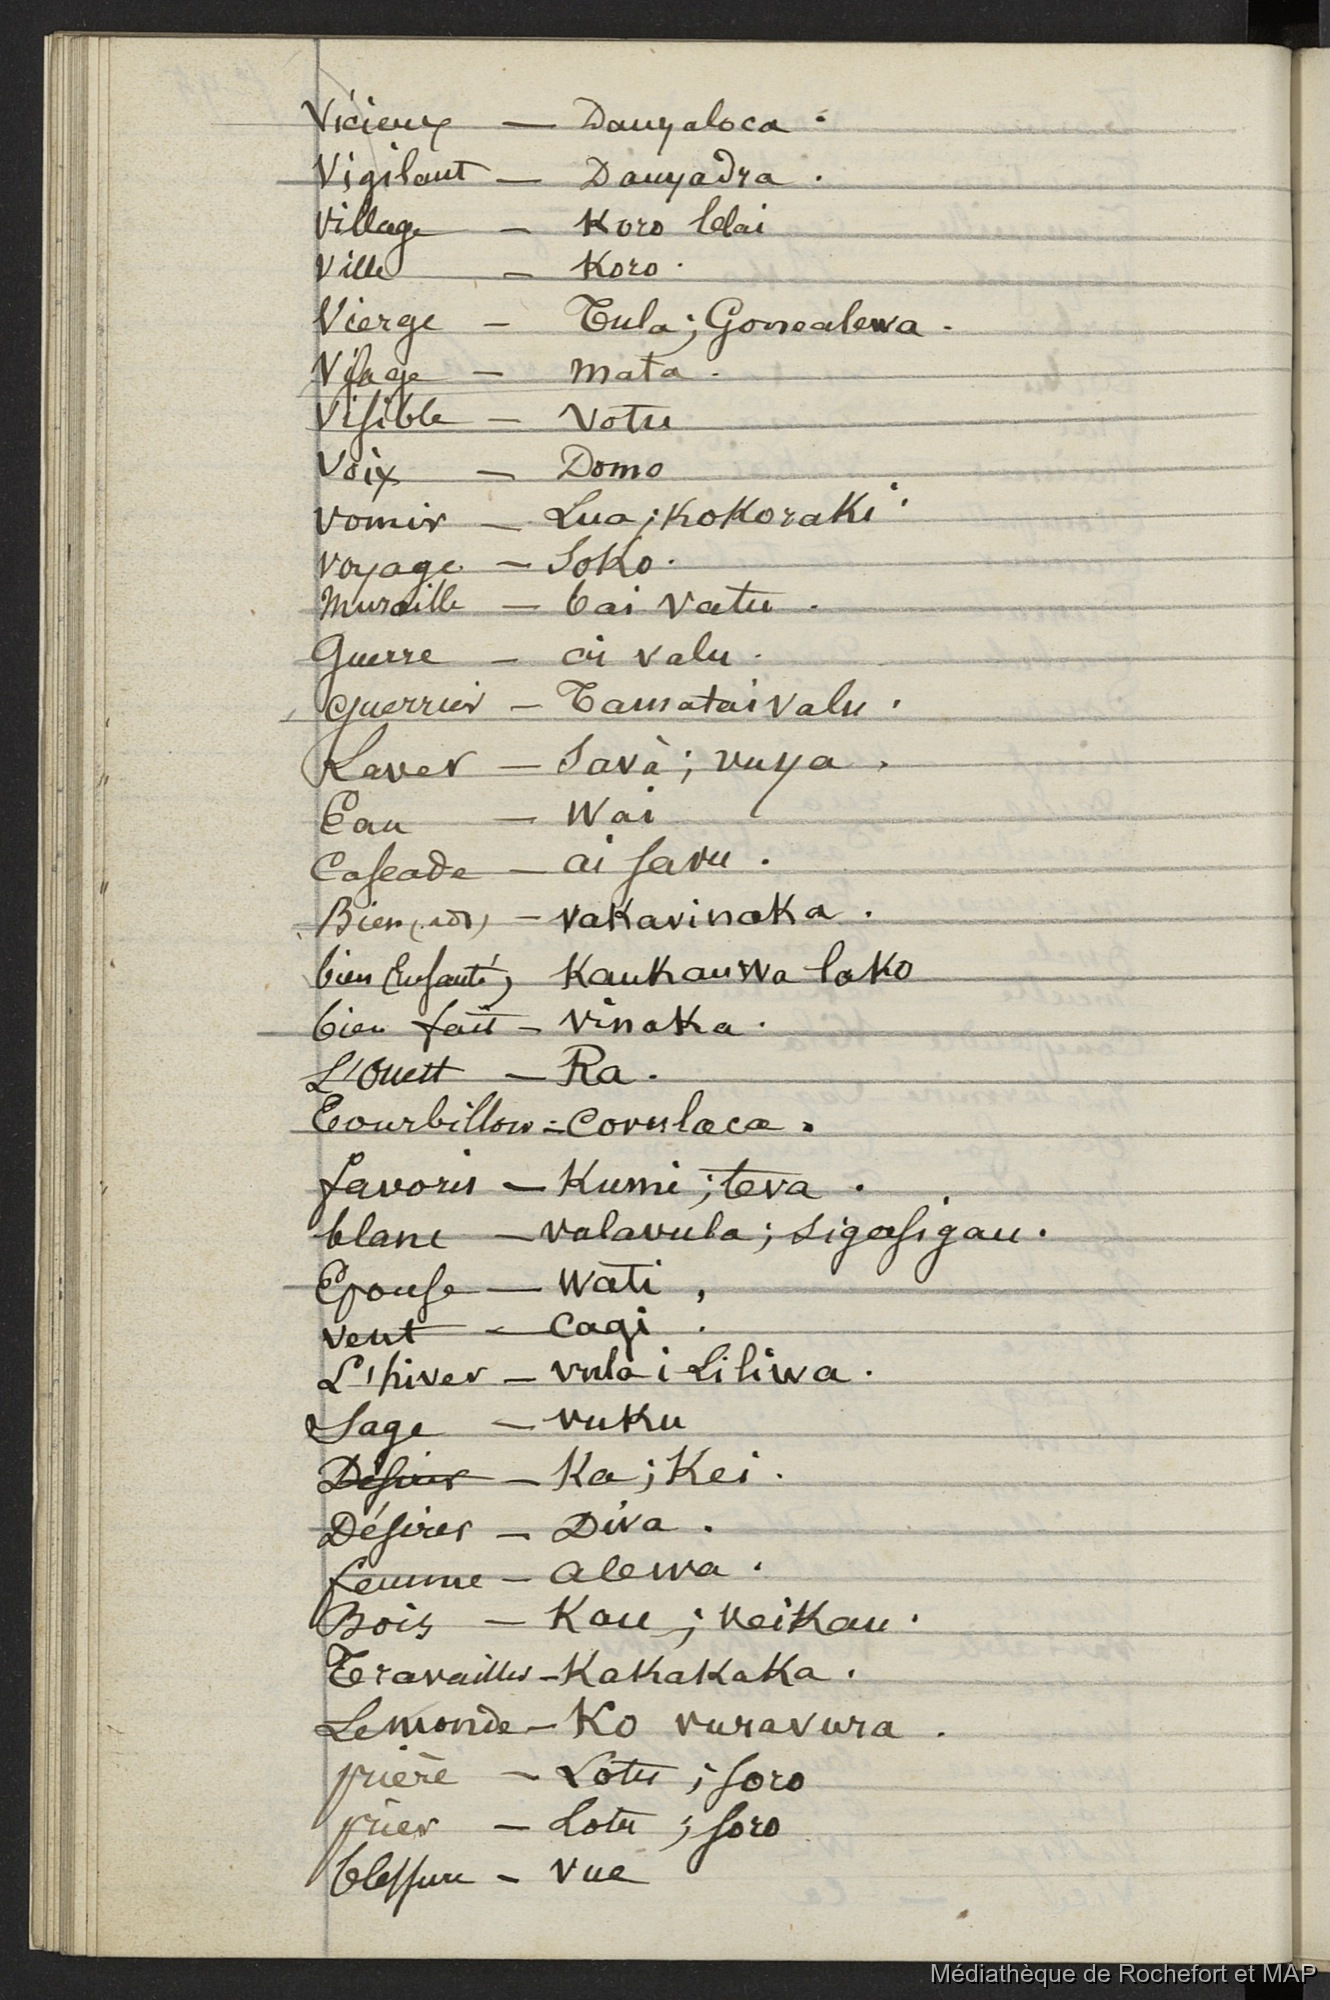 Vicieux — Dauyaloca.
Vigilant — Dauyadra.
Village — Koro lelai
Ville — Koro.
Vierge — Tula; Gonealewa.
Visage — mata.
Visible — Votu
Voix — Domo
vomir — Lua; KoKoraKi.
voyage — SoKo.
Muraille — bai vatu.
Guerre — ai valu.
Guerrier — Tamataivalu.
Laver — Savà; vuya.
Eau — Wai
Cascade — ai Savu.
Bien (adv) — vaKavinaKa.
bien (Ensanté) KauKauwa laKo
bien fait — VinaKa.
L'Ouest — Ra.
Tourbillon — Covulaca.
favoris — Kumi; teva.
blanc — valavula; sigasigau.
Epouse — Wati,
vent — cagi.
L'hiver — vula i Liliwa.
Sage — vuKu
Désirer — Ka; Kei.
Désirer — Diva.
femme — alewa.
Bois — Kau; veiKau.
Travailler — KaKaKaKa.
Le monde — Ko vuravura.
prière — Lotu; soro
prier — Lotu; soro
blessure — vue
Médiathèque de Rochefort et MAP